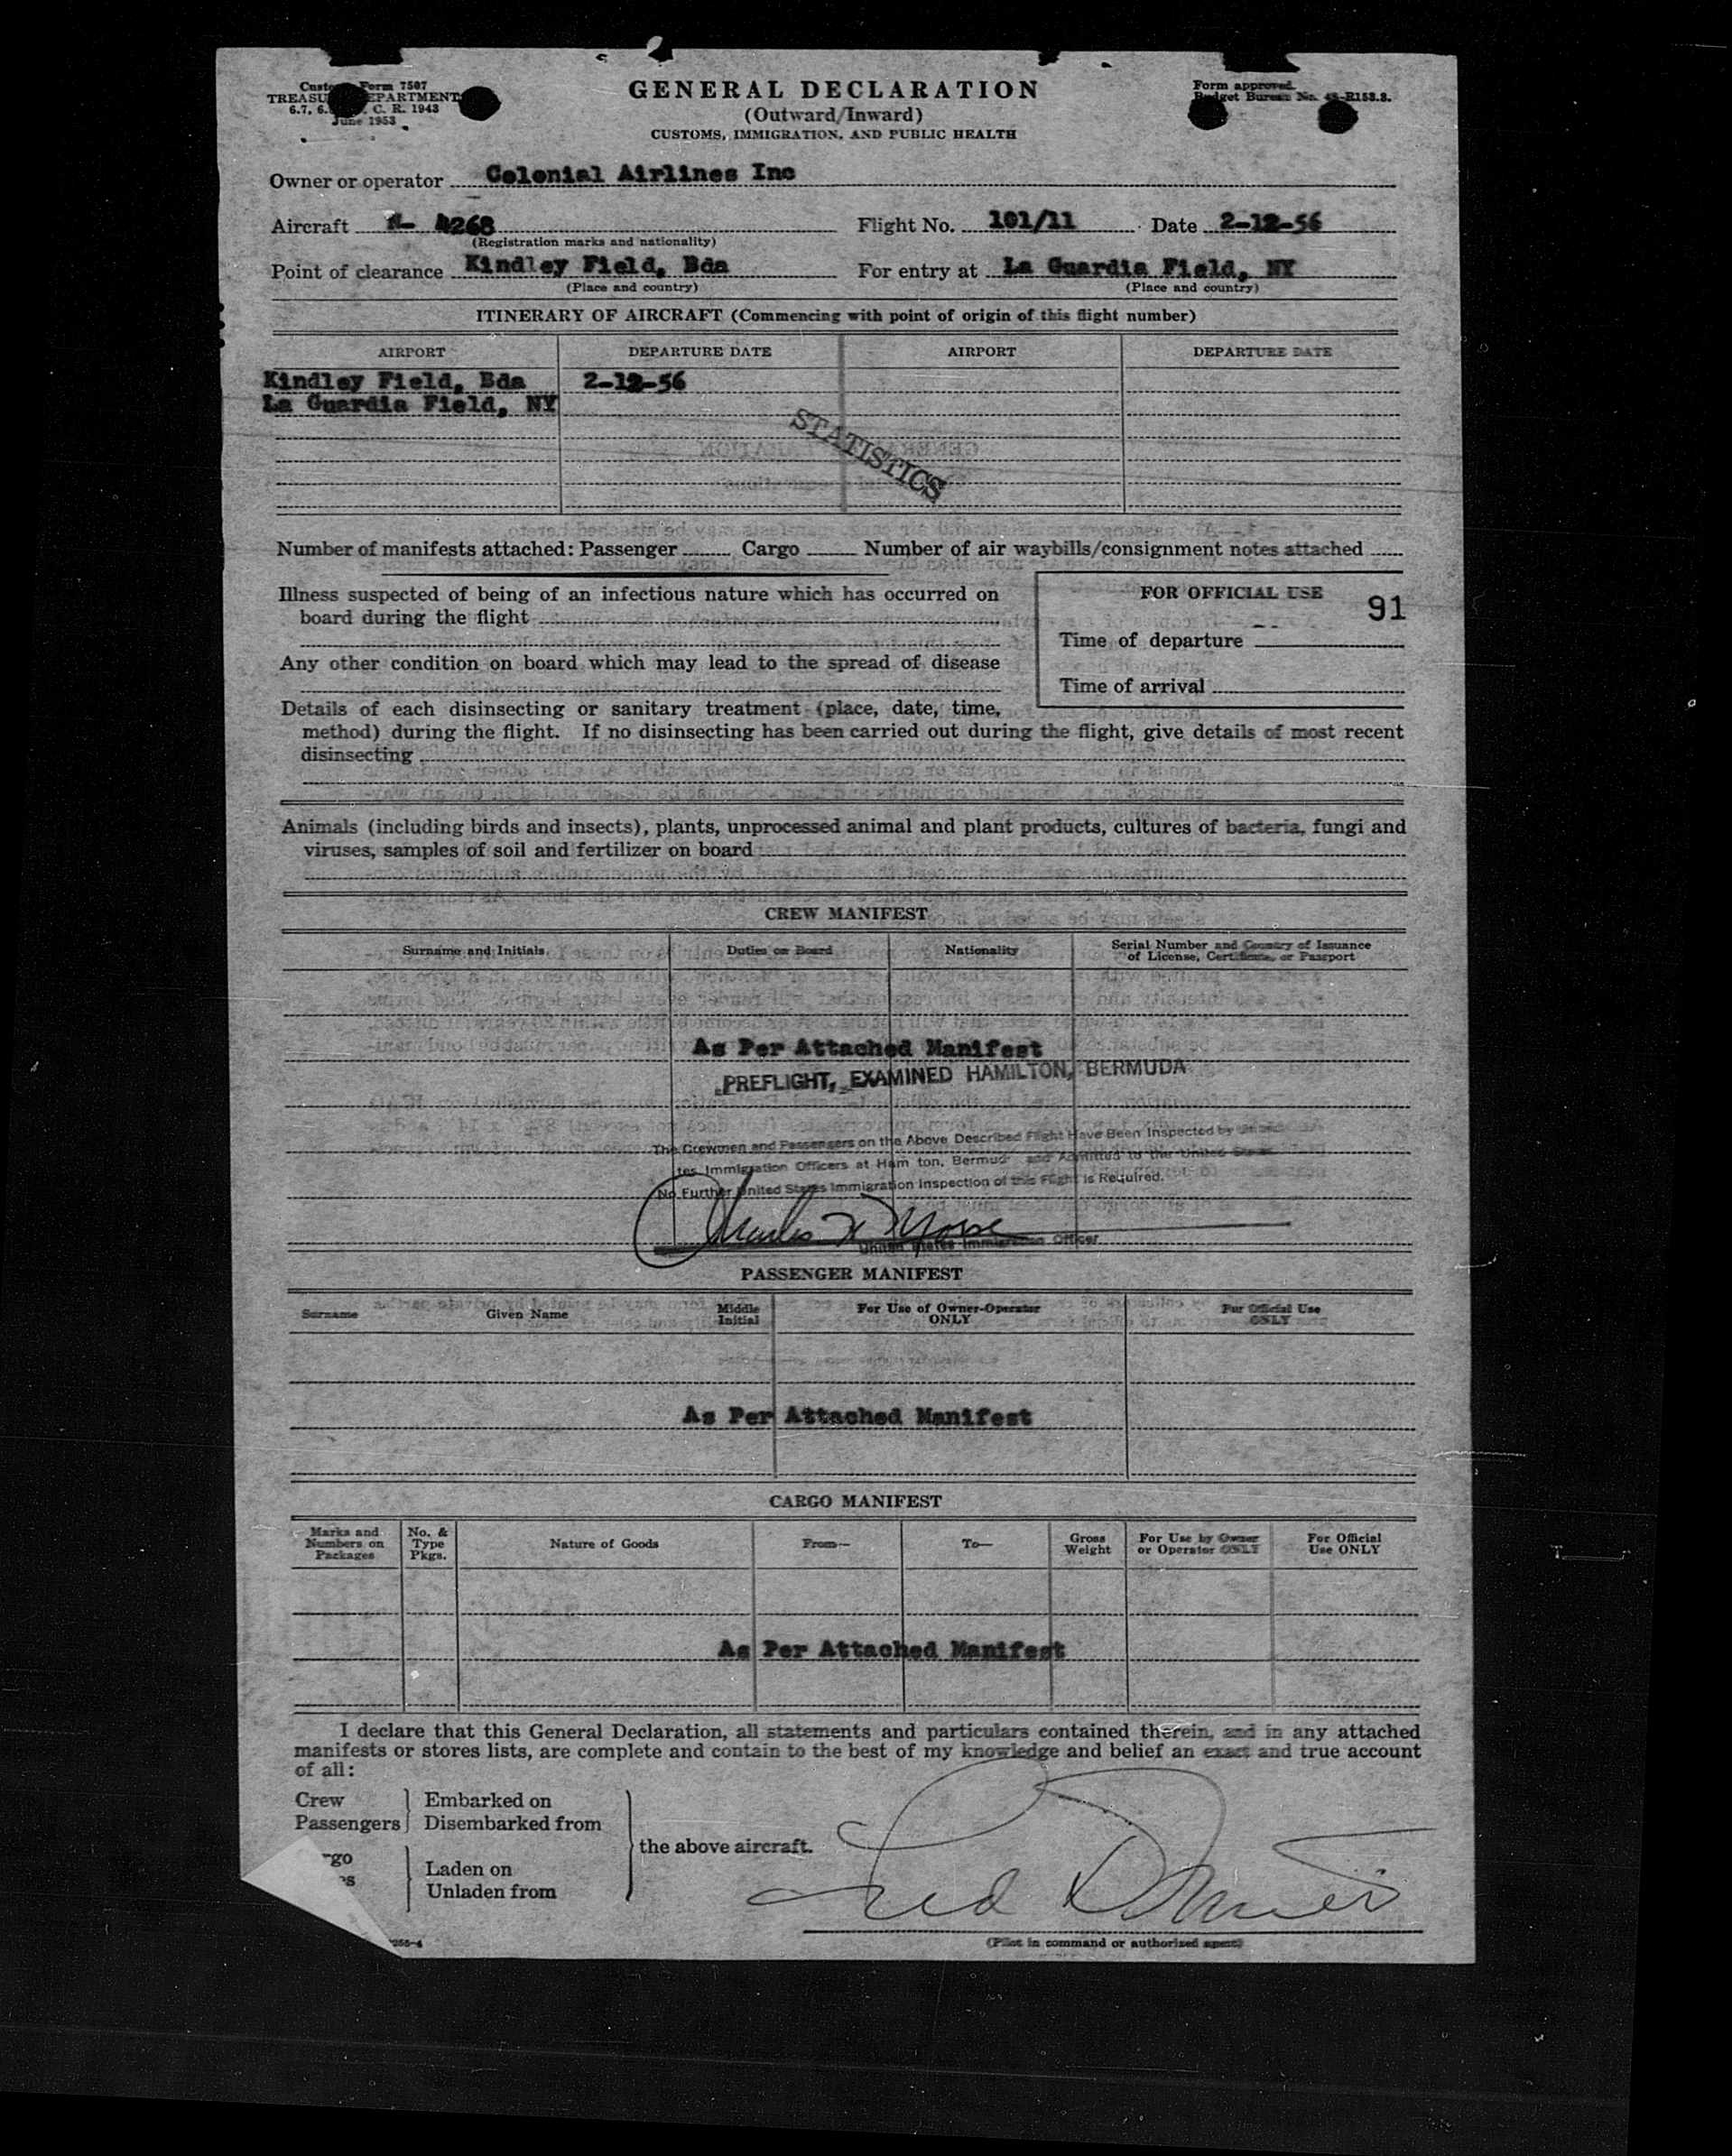 Form 7507
TREASURY DEPARTMENT
C. R. 1943
June 1953
GENERAL DECLARATION
(Outward/Inward)
CUSTOMS, IMMIGRATION, AND PUBLIC HEALTH
Form approved.
Budget Bureau No. 48-R153.3.
Owner or operator Colonial Airlines Inc
Aircraft N- 4268 Flight No. 101/11 Date 2-12-56
(Registration marks and nationality)
Point of clearance Kindley Field, Bda For entry at La Guardia Field, NY
(Place and country) (Place and country)
ITINERARY OF AIRCRAFT (Commencing with point of origin of this flight number)
AIRPORT DEPARTURE DATE AIRPORT DEPARTURE DATE
Kindley Field, Bda 2-12-56
La Guardia Field, NY
STATISTICS
Number of manifests attached: Passenger Cargo Number of air waybills/consignment notes attached
Illness suspected of being of an infectious nature which has occurred on
board during the flight
FOR OFFICIAL USE 91
Time of departure
Any other condition on board which may lead to the spread of disease
Time of arrival
Details of each disinsecting or sanitary treatment (place, date, time,
method) during the flight. If no disinsecting has been carried out during the flight, give details of most recent
disinsecting
Animals (including birds and insects), plants, unprocessed animal and plant products, cultures of bacteria, fungi and
viruses, samples of soil and fertilizer on board
CREW MANIFEST
Surname and Initials Duties on Board Nationality Serial Number and Country of Issuance
of License, Certificate, or Passport
As Per Attached Manifest
PREFLIGHT, EXAMINED HAMILTON, BERMUDA
The Crewmen and Passengers on the Above Described Flight Have Been Inspected by
tes Immigration Officers at Ham ton, Bermud and Admitted to the United States
No Further United States Immigration Inspection of this Flight is Required.
Charles
United States Immigration Officer
PASSENGER MANIFEST
Surname Given Name Middle
Initial For Use of Owner-Operator
ONLY For Official Use
ONLY
As Per Attached Manifest
CARGO MANIFEST
Marks and
Numbers on
Packages No. &
Type
Pkgs. Nature of Goods From— To— Gross
Weight For Use by Owner
or Operator ONLY For Official
Use ONLY
As Per Attached Manifest
I declare that this General Declaration, all statements and particulars contained therein, and in any attached
manifests or stores lists, are complete and contain to the best of my knowledge and belief an exact and true account
of all:
Crew Embarked on
Passengers Disembarked from
the above aircraft.
rgo Laden on
es Unladen from
(Pilot in command or authorized agent)